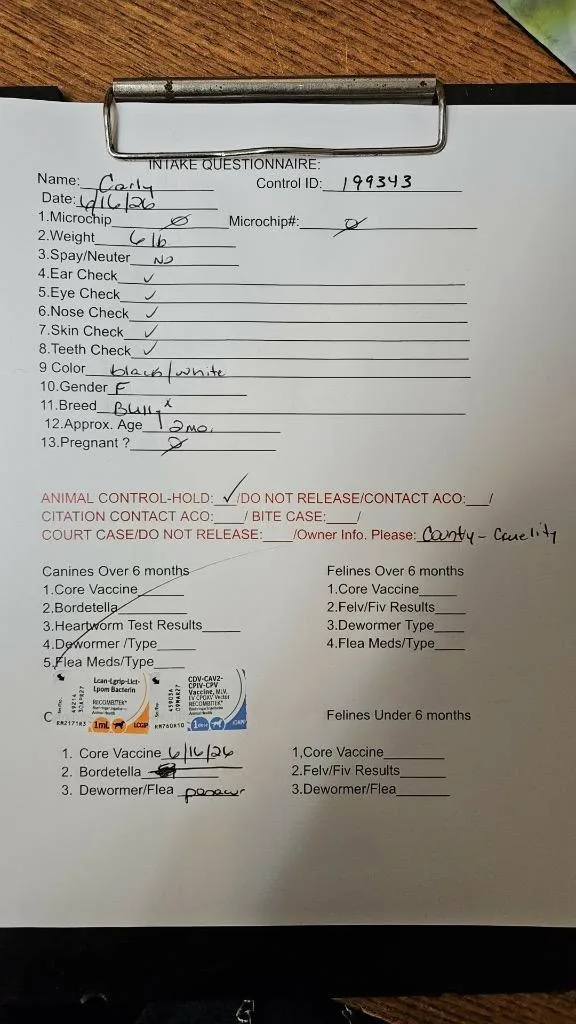 INTAKE QUESTIONNAIRE:
Name: Carly Control ID: 199343
Date: 6/16/26
1.Microchip Ø Microchip#: Ø
2.Weight 6 lb
3.Spay/Neuter No
4.Ear Check ✓
5.Eye Check ✓
6.Nose Check ✓
7.Skin Check ✓
8.Teeth Check ✓
9 Color black/white
10.Gender F
11.Breed Bully x
12.Approx. Age 2mo.
13.Pregnant ? Ø
ANIMAL CONTROL-HOLD: ✓/DO NOT RELEASE/CONTACT ACO:___/
CITATION CONTACT ACO:____/ BITE CASE:____/
COURT CASE/DO NOT RELEASE:____/Owner Info. Please: County - Cruelity
Canines Over 6 months
1.Core Vaccine
2.Bordetella
3.Heartworm Test Results
4.Dewormer /Type
5.Flea Meds/Type
Felines Over 6 months
1.Core Vaccine
2.Felv/Fiv Results
3.Dewormer Type
4.Flea Meds/Type
Lcan-Lgrip-Lict-
Lpom Bacterin
RECOMBITEK
1mL
CDV-CAV2-
CPIV-CPV
Vaccine, MLV,
RECOMBITEK
1 dose
C
Felines Under 6 months
1. Core Vaccine 6/16/26
2. Bordetella
3. Dewormer/Flea
1,Core Vaccine
2.Felv/Fiv Results
3.Dewormer/Flea